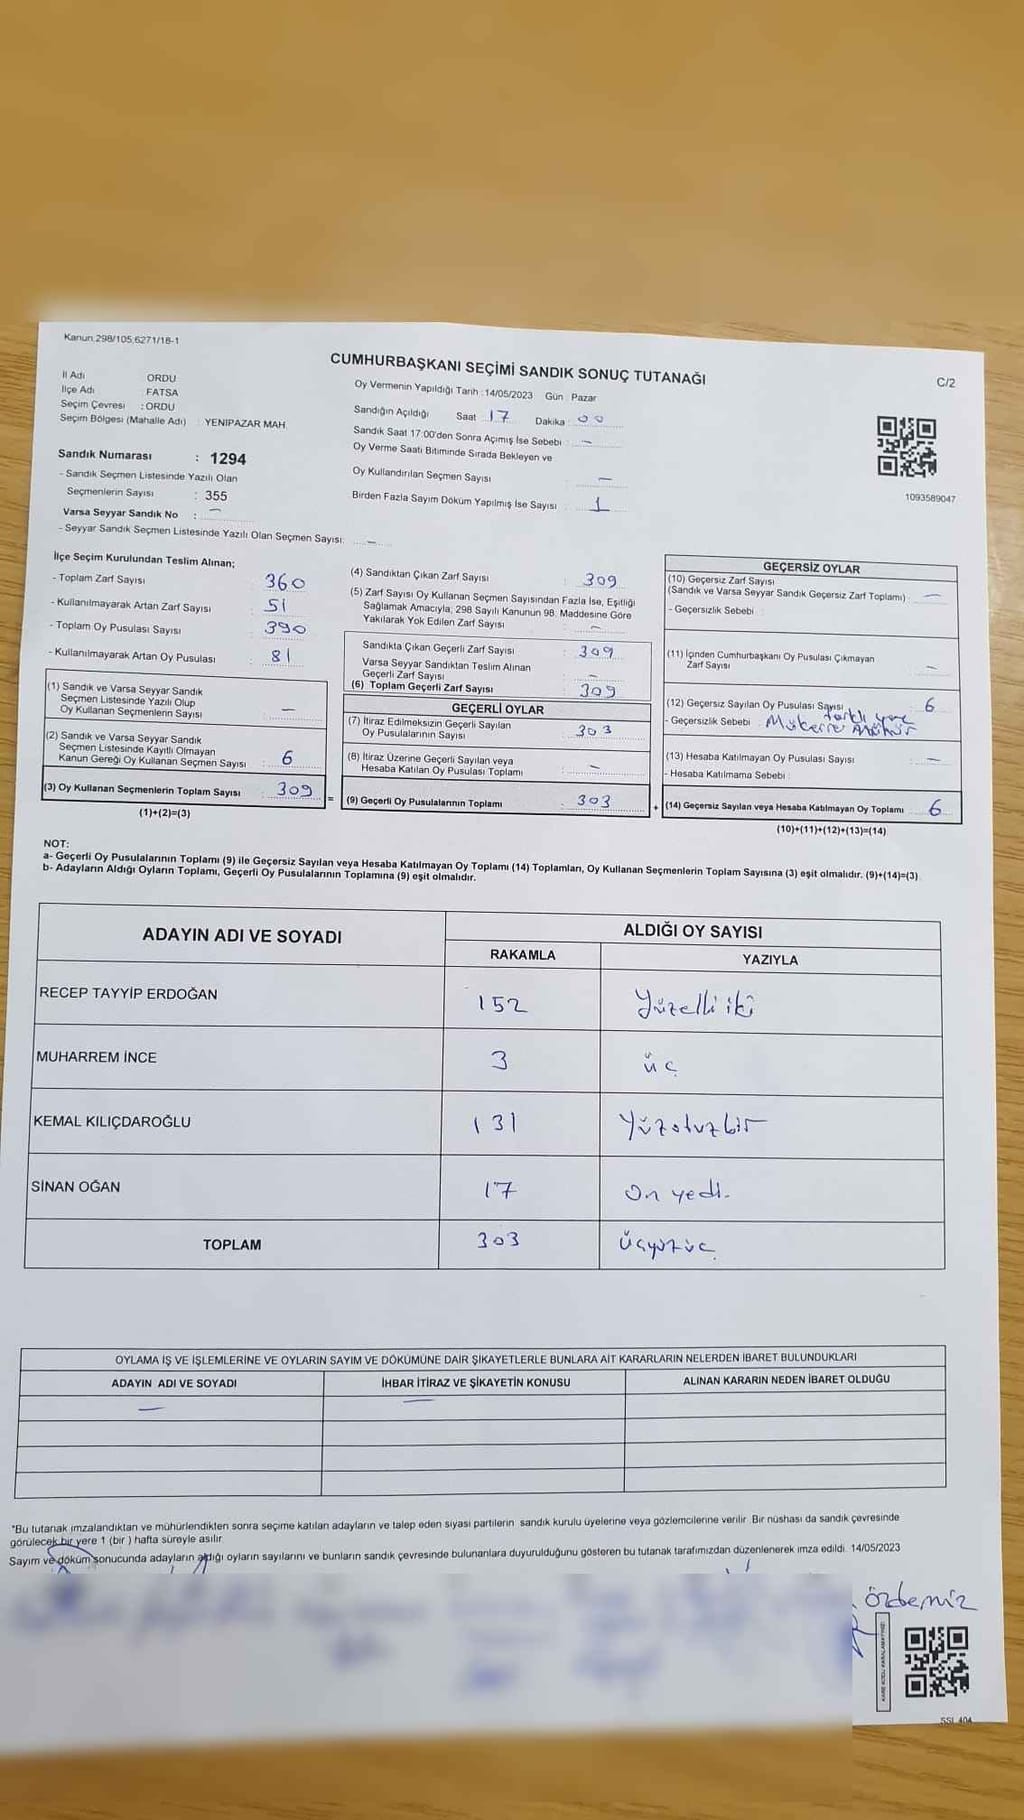 Kanun.298/105,6271/18-1
CUMHURBAŞKANI SEÇİMİ SANDIK SONUÇ TUTANAĞI
C/2
İl Adı ORDU
İlçe Adı FATSA
Seçim Çevresi : ORDU
Seçim Bölgesi (Mahalle Adı) : YENIPAZAR MAH.
Oy Vermenin Yapıldığı Tarih :14/05/2023 Gün : Pazar
Sandığın Açıldığı Saat 17 Dakika : 00
Sandık Saat 17:00'den Sonra Açımış İse Sebebi : —
Oy Verme Saati Bitiminde Sırada Bekleyen ve
Oy Kullandırılan Seçmen Sayısı —
Birden Fazla Sayım Döküm Yapılmış İse Sayısı 1
Sandık Numarası : 1294
- Sandık Seçmen Listesinde Yazılı Olan
Seçmenlerin Sayısı : 355
Varsa Seyyar Sandık No : —
- Seyyar Sandık Seçmen Listesinde Yazılı Olan Seçmen Sayısı: —
1093589047
İlçe Seçim Kurulundan Teslim Alınan;
- Toplam Zarf Sayısı : 360
- Kullanılmayarak Artan Zarf Sayısı : 51
- Toplam Oy Pusulası Sayısı : 390
- Kullanılmayarak Artan Oy Pusulası : 81
(1) Sandık ve Varsa Seyyar Sandık
Seçmen Listesinde Yazılı Olup
Oy Kullanan Seçmenlerin Sayısı : —
(2) Sandık ve Varsa Seyyar Sandık
Seçmen Listesinde Kayıtlı Olmayan
Kanun Gereği Oy Kullanan Seçmen Sayısı : 6
(3) Oy Kullanan Seçmenlerin Toplam Sayısı : 309
(1)+(2)=(3)
=
(4) Sandıktan Çıkan Zarf Sayısı : 309
(5) Zarf Sayısı Oy Kullanan Seçmen Sayısından Fazla İse, Eşitliği
Sağlamak Amacıyla, 298 Sayılı Kanunun 98. Maddesine Göre
Yakılarak Yok Edilen Zarf Sayısı : —
Sandıkta Çıkan Geçerli Zarf Sayısı : 309
Varsa Seyyar Sandıktan Teslim Alınan
Geçerli Zarf Sayısı : —
(6) Toplam Geçerli Zarf Sayısı : 309
GEÇERLİ OYLAR
(7) İtiraz Edilmeksizin Geçerli Sayılan
Oy Pusulalarının Sayısı : 303
(8) İtiraz Üzerine Geçerli Sayılan veya
Hesaba Katılan Oy Pusulası Toplamı : —
(9) Geçerli Oy Pusulalarının Toplamı : 303
+
GEÇERSİZ OYLAR
(10) Geçersiz Zarf Sayısı
(Sandık ve Varsa Seyyar Sandık Geçersiz Zarf Toplamı) : —
- Geçersizlik Sebebi :
(11) İçinden Cumhurbaşkanı Oy Pusulası Çıkmayan
Zarf Sayısı : —
(12) Geçersiz Sayılan Oy Pusulası Sayısı : 6
farklı yere
- Geçersizlik Sebebi : Mükerrer Mühür
(13) Hesaba Katılmayan Oy Pusulası Sayısı : —
- Hesaba Katılmama Sebebi :
(14) Geçersiz Sayılan veya Hesaba Katılmayan Oy Toplamı : 6
(10)+(11)+(12)+(13)=(14)
NOT:
a- Geçerli Oy Pusulalarının Toplamı (9) ile Geçersiz Sayılan veya Hesaba Katılmayan Oy Toplamı (14) Toplamları, Oy Kullanan Seçmenlerin Toplam Sayısına (3) eşit olmalıdır. (9)+(14)=(3)
b- Adayların Aldığı Oyların Toplamı, Geçerli Oy Pusulalarının Toplamına (9) eşit olmalıdır.
ADAYIN ADI VE SOYADI ALDIĞI OY SAYISI
RAKAMLA YAZIYLA
RECEP TAYYİP ERDOĞAN 152 Yüzelli iki
MUHARREM İNCE 3 üç
KEMAL KILIÇDAROĞLU 131 Yüzotuzbir
SİNAN OĞAN 17 On yedi
TOPLAM 303 Üçyüzüç
OYLAMA İŞ VE İŞLEMLERİNE VE OYLARIN SAYIM VE DÖKÜMÜNE DAİR ŞİKAYETLERLE BUNLARA AİT KARARLARIN NELERDEN İBARET BULUNDUKLARI
ADAYIN ADI VE SOYADI İHBAR İTİRAZ VE ŞİKAYETİN KONUSU ALINAN KARARIN NEDEN İBARET OLDUĞU
— —
*Bu tutanak imzalandıktan ve mühürlendikten sonra seçime katılan adayların ve talep eden siyasi partilerin sandık kurulu üyelerine veya gözlemcilerine verilir. Bir nüshası da sandık çevresinde
görülecek bir yere 1 (bir ) hafta süreyle asılır.
Sayım ve döküm sonucunda adayların aldığı oyların sayılarını ve bunların sandık çevresinde bulunanlara duyurulduğunu gösteren bu tutanak tarafımızdan düzenlenerek imza edildi. 14/05/2023
Özdemir
KARE KODU KARALAMAYINIZ!
SSI 404